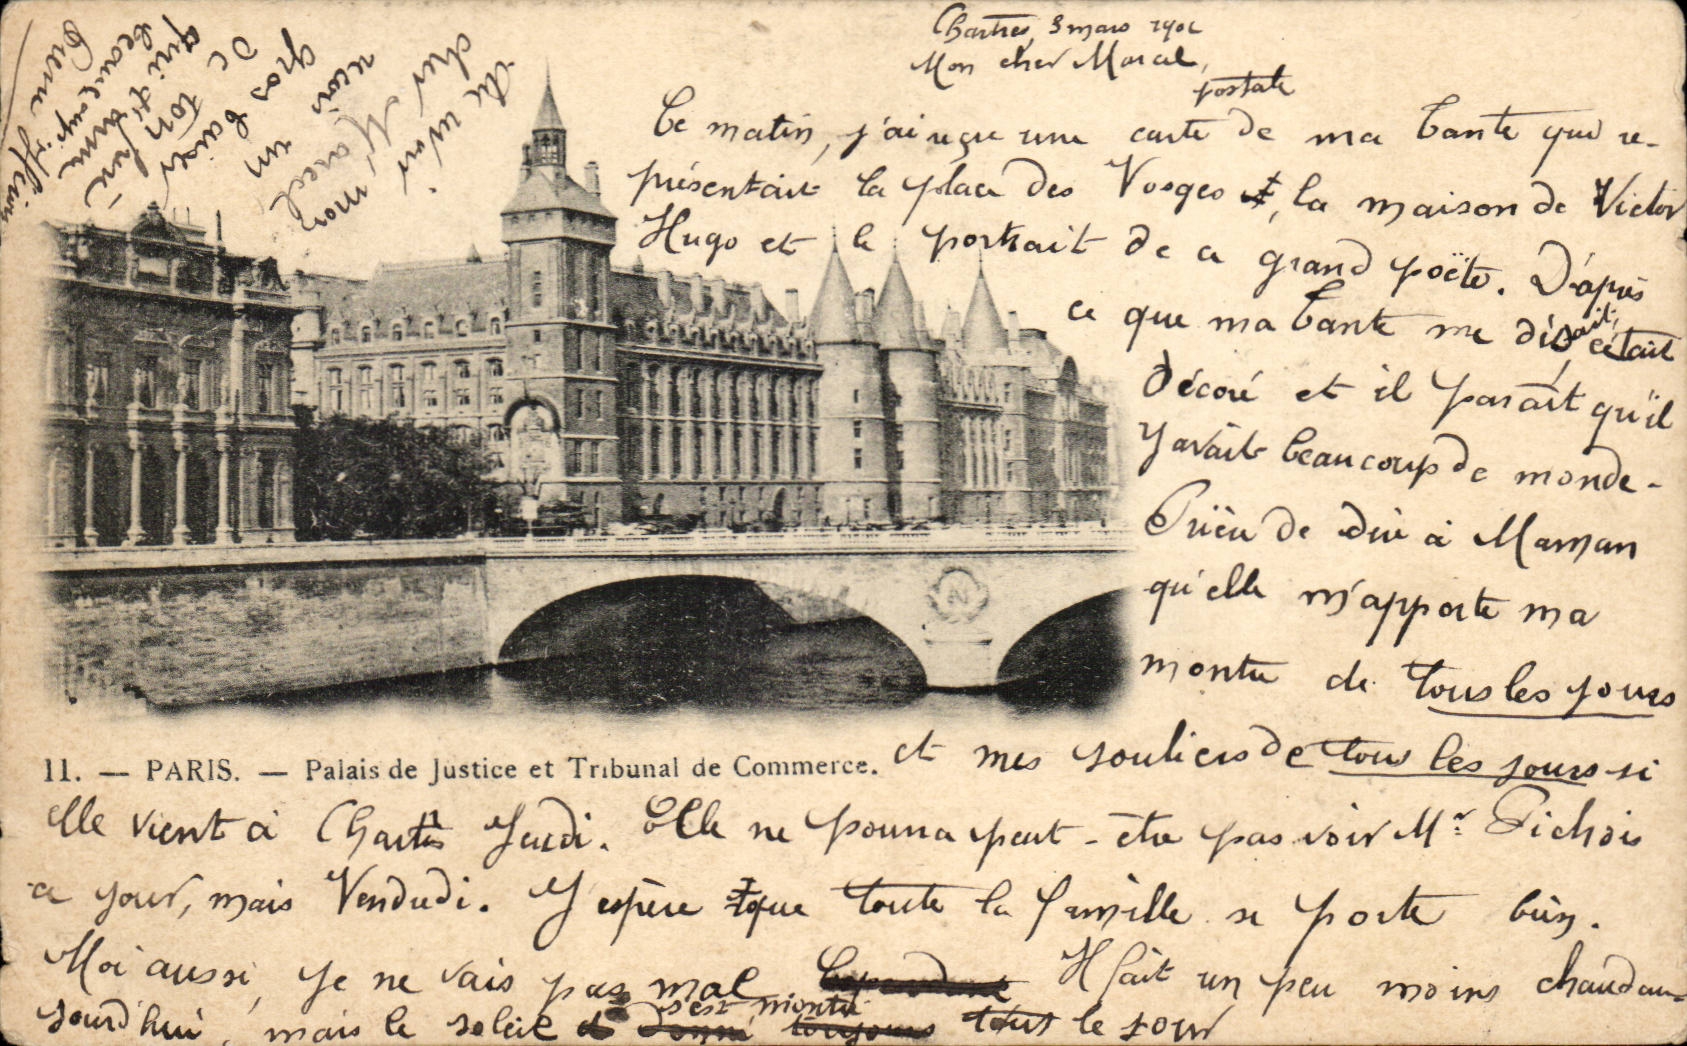 Chartres, 3 mars 1902
Mon cher Marcel,
postale
Ce matin, j'ai reçu une carte de ma tante qui re-
présentait la place des Vosges, la maison de Victor
Hugo et le portrait de ce grand poëte. D'après
ce que ma tante me disait, c'était
décoré et il paraît qu'il
y avait beaucoup de monde.
Prière de dire à Maman
qu'elle m'apporte ma
montre de tous les jours
et mes souliers de tous les jours si
11. — PARIS. — Palais de Justice et Tribunal de Commerce.
elle vient à Chartres Jeudi. Elle ne pourra peut-être pas voir Mr Pichois
ce jour, mais Vendredi. J'espère que toute la famille se porte bien.
Moi aussi, je ne vais pas mal Cependant Il fait un peu moins chaud au-
jourd'hui, mais le soleil s'est montré tout le jour
Au revoir
cher Marcel
reçois mon
gros un
baiser
de ton
qui t'aime
beaucoup
Pierre
N